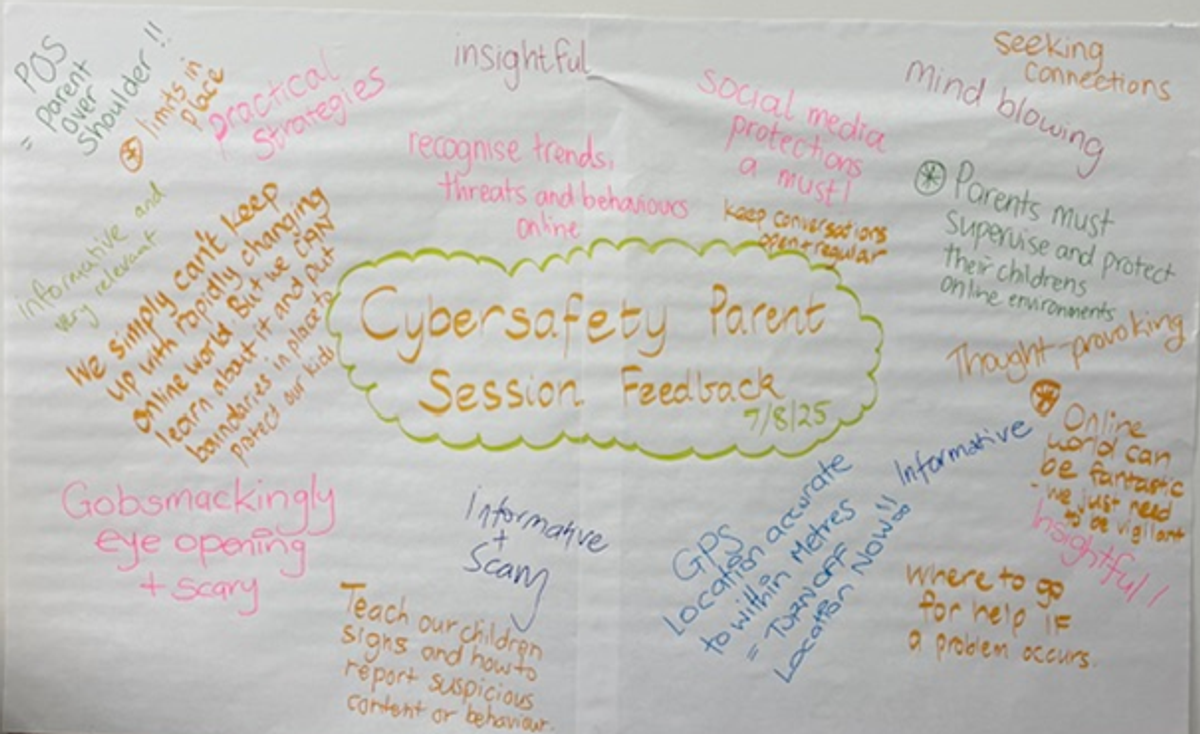 POS
= parent
over
shoulder!!
limits in
place
practical
strategies
insightful
recognise trends,
threats and behaviours
online
social media
protections
a must!
keep conversations
open + regular
seeking
connections
mind blowing
Parents must
supervise and protect
their childrens
online environments
informative and
very relevant
We simply can't keep
up with rapidly changing
online world. But we CAN
learn about it and put
boundaries in place to
protect our kids
Cybersafety Parent
Session Feedback
7/8/25
Thought-provoking
Online
world can
be fantastic
- we just need
to be vigilant
Insightful!
Informative
GPS
Location accurate
to within Metres
= TURN OFF
Location NOW!!
Gobsmackingly
eye opening
+ scary
informative
+
scary
Teach our children
signs and how to
report suspicious
content or behaviour.
Where to go
for help IF
a problem occurs.